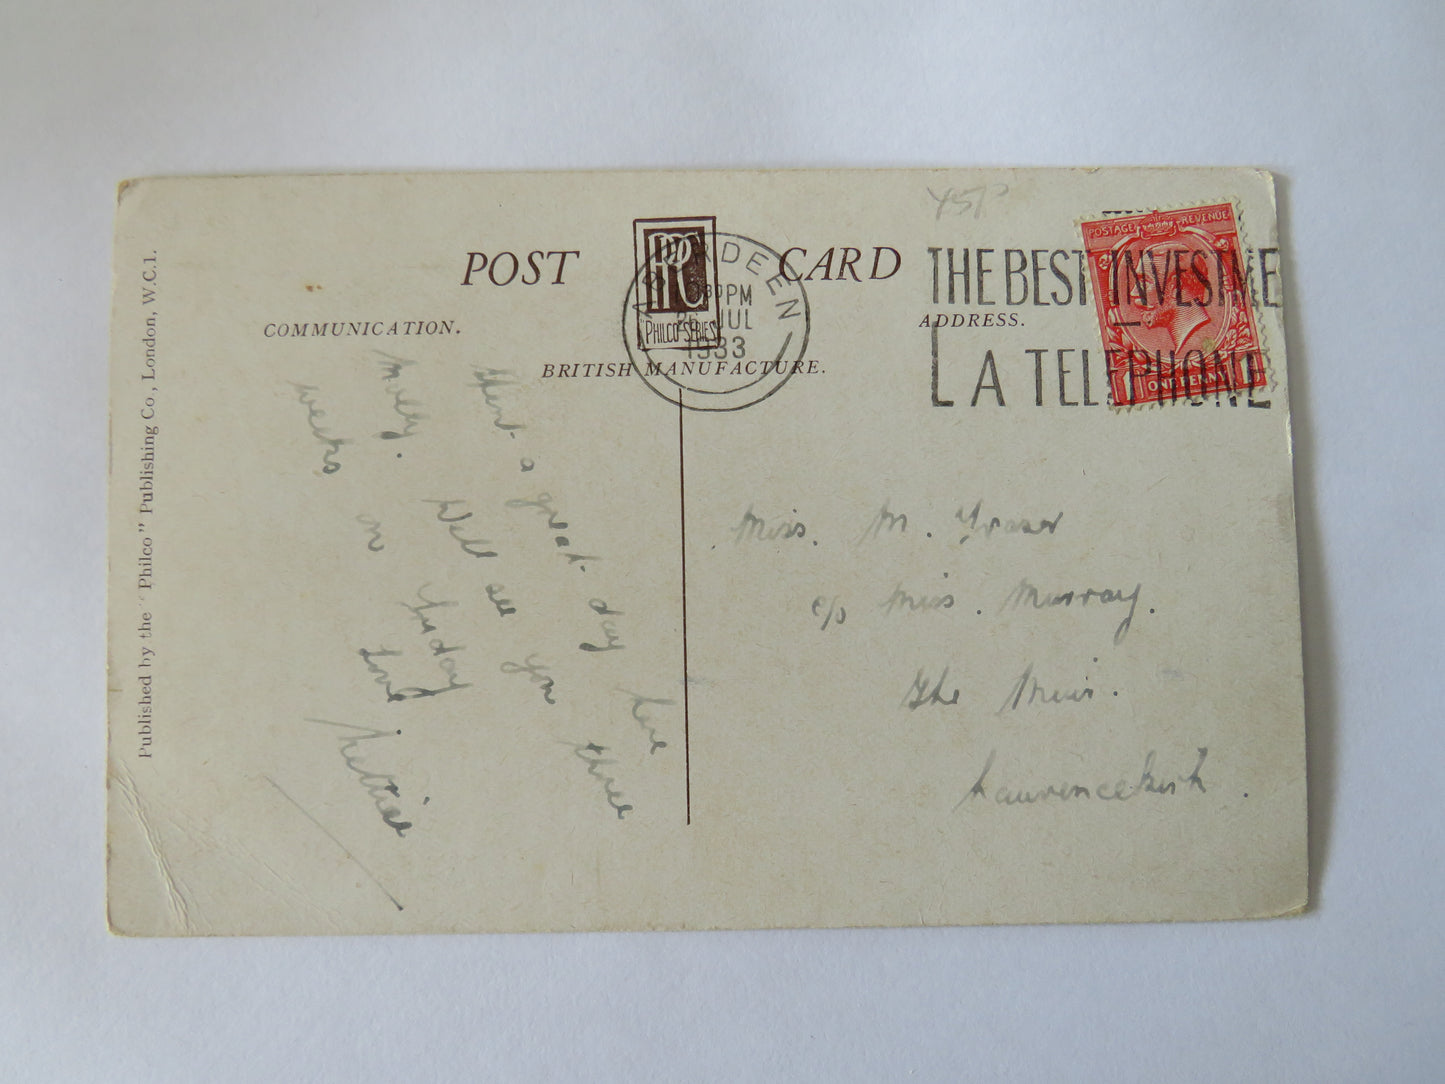 POST CARD
PPC
"PHILCO" SERIES
COMMUNICATION.
ADDRESS.
BRITISH MANUFACTURE.
Published by the "Philco" Publishing Co., London, W.C.1.
ABERDEEN
PM
26 JUL
1933
THE BEST INVESTME
A TELEPHONE
POSTAGE REVENUE
1 ONE PENNY 1
45P
a great day here
Molly. Will see you three
weeks on Friday
Love
Lettie
Miss. M. Fraser
c/o Miss. Murray.
The Muir.
Laurencekirk.